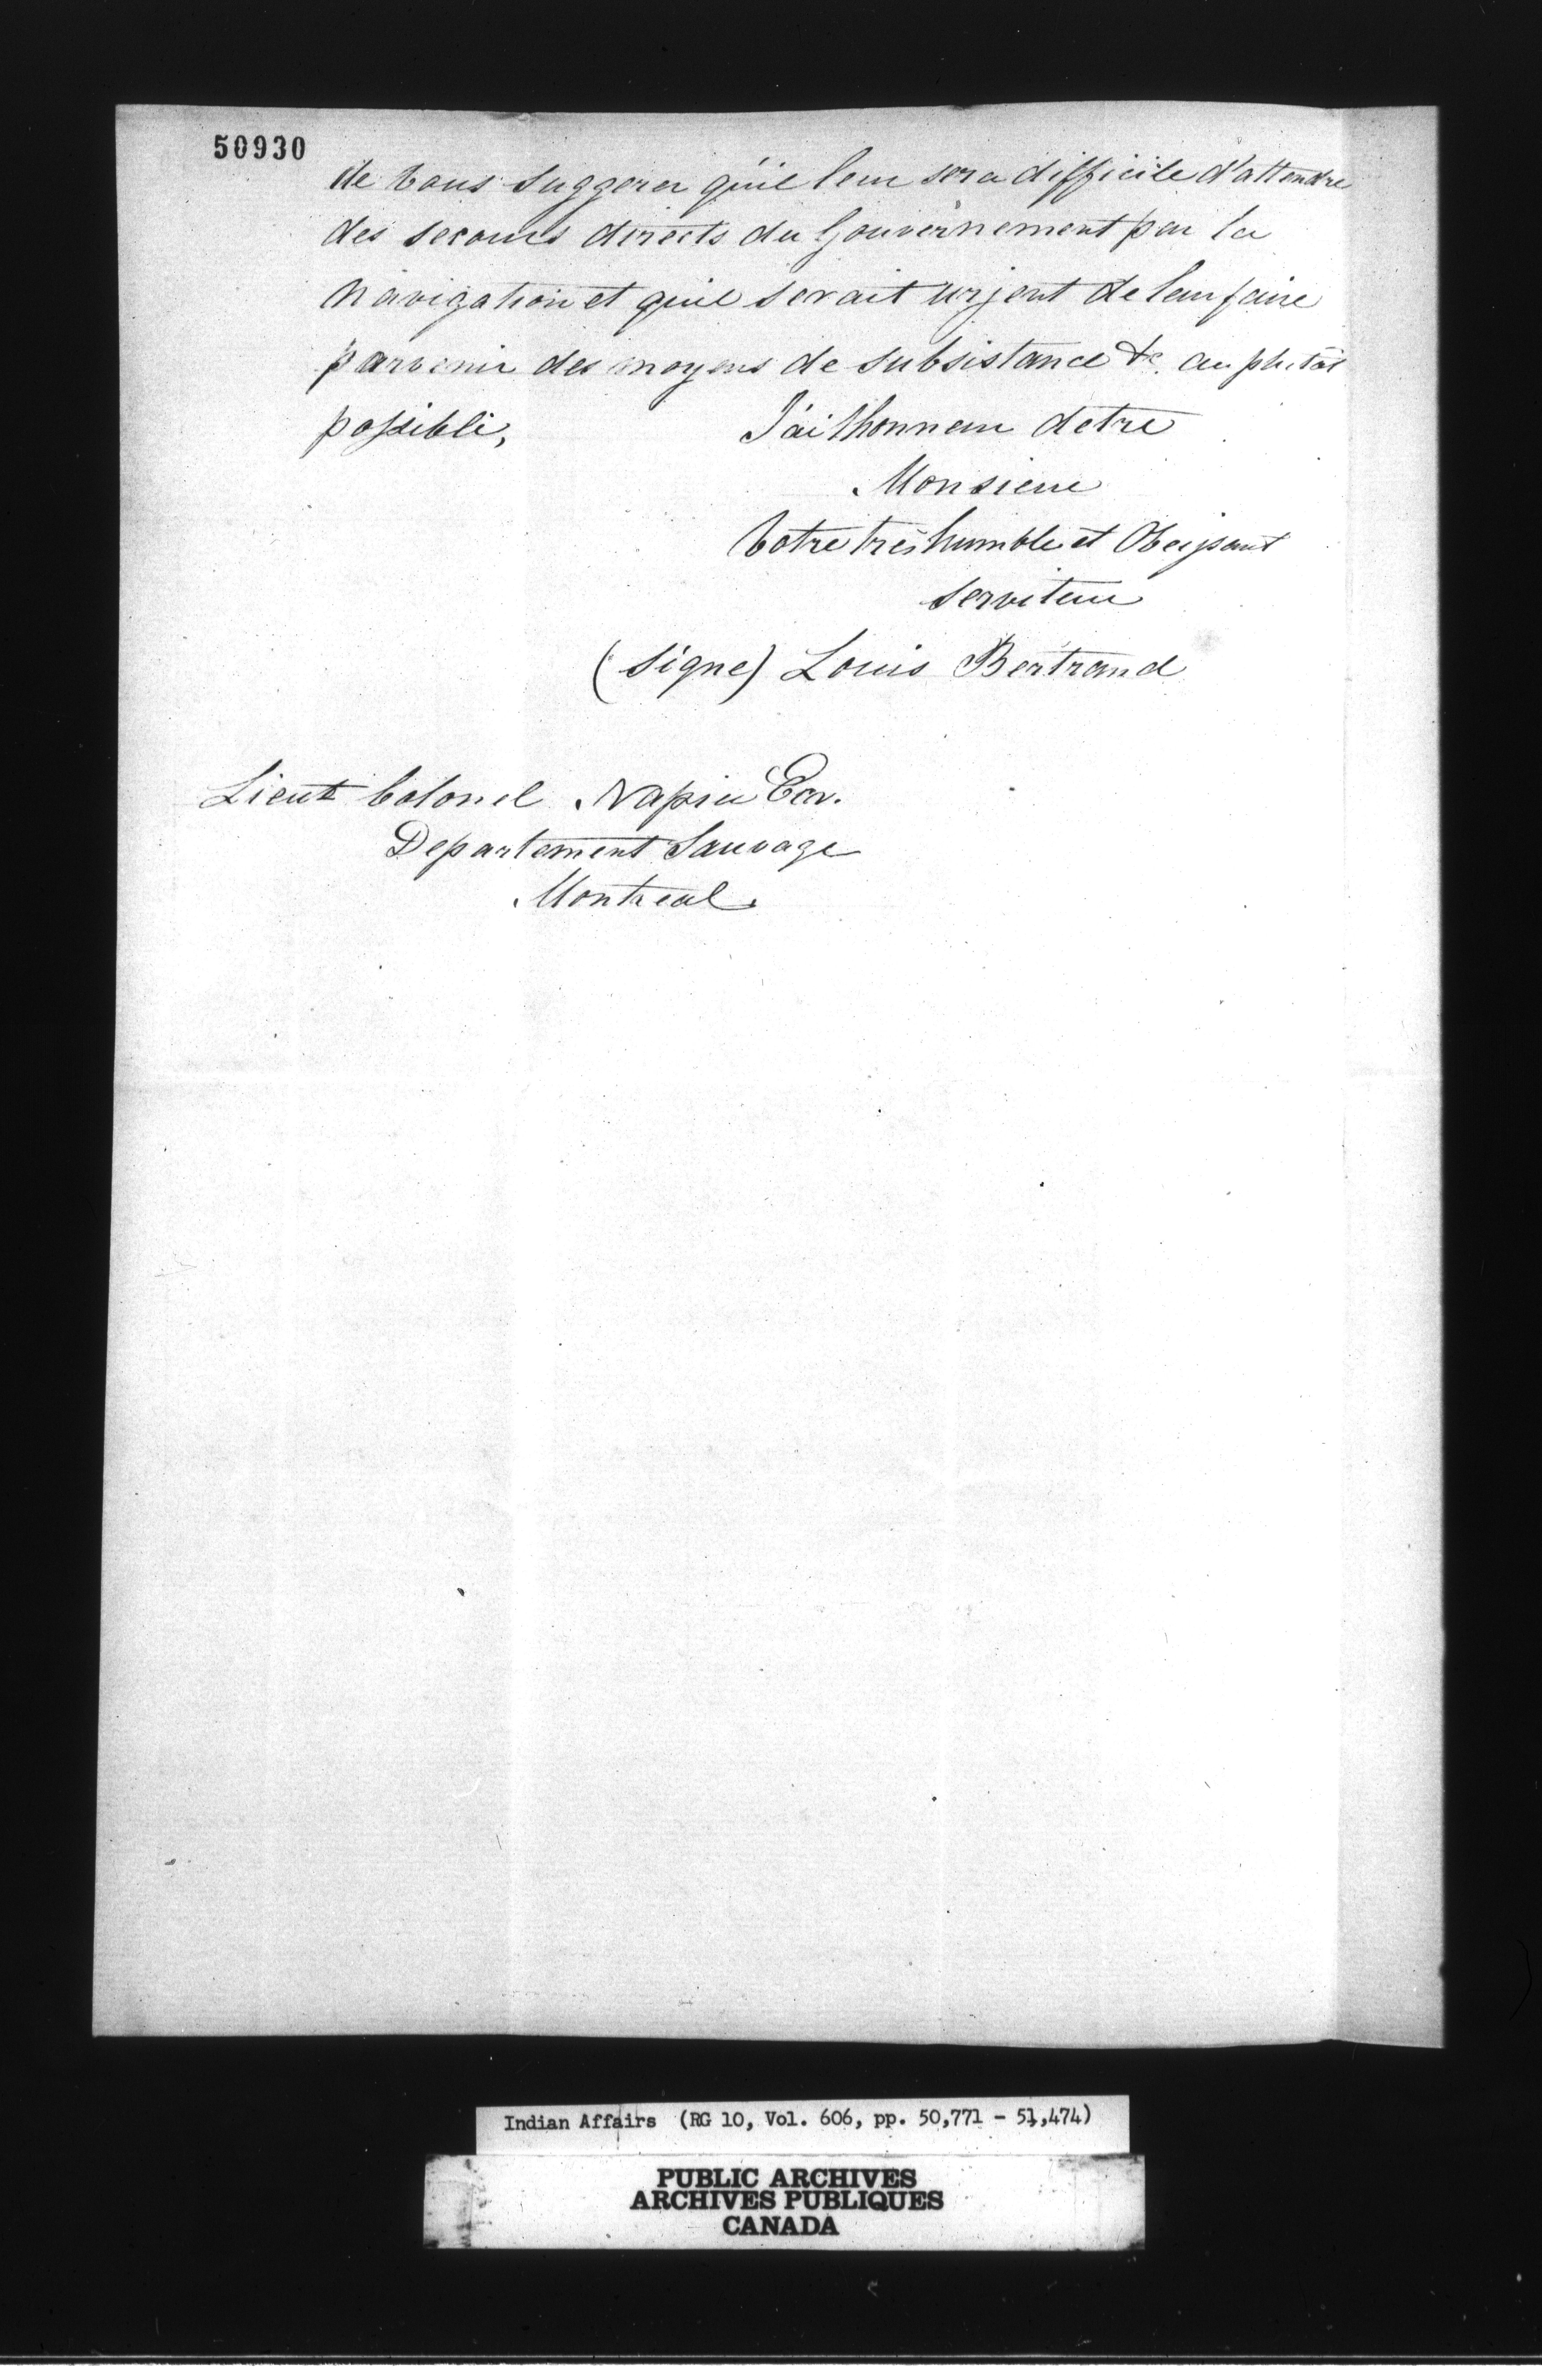 50930
de vous suggerer qu'il leur sera difficile d'attendre
des secours directs du Gouvernement par la
Navigation et qu'il serait urjent de leur faire
parvenir des moyens de subsistance &c. au plutôt
possible,
J'ai lhonneur detre
Monsieur
Votre très humble et Obeissant
serviteur
(signe) Louis Bertrand
Lieut Colonel Napier Ecr.
Departement Sauvage
Montreal.
Indian Affairs (RG 10, Vol. 606, pp. 50,771 - 51,474)
PUBLIC ARCHIVES
ARCHIVES PUBLIQUES
CANADA